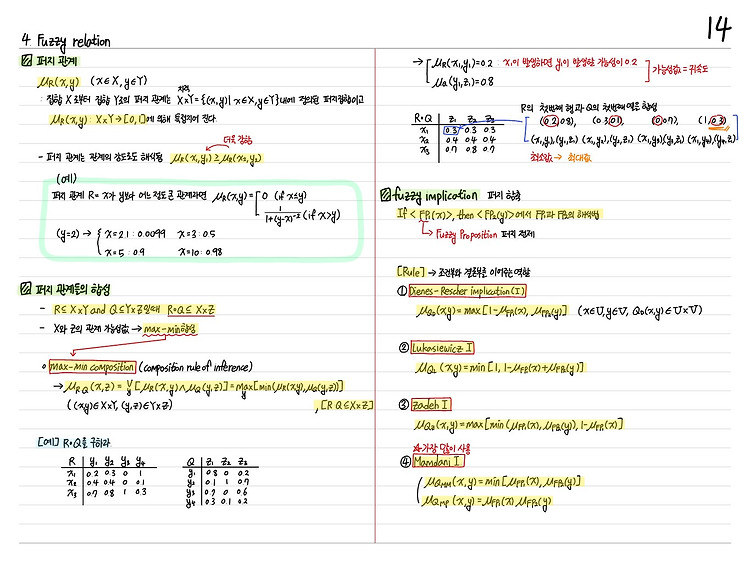 14
4. Fuzzy relation
퍼지 관계
μR(x,y) (x∈X, y∈Y)
: 집합 X로부터 집합 Y로의 퍼지 관계는 X×Y={(x,y)|x∈X, y∈Y}내에 정의된 퍼지집합이고
직적
μR(x,y): X×Y→[0,1]에 의해 특징지어 진다.
더욱 강함
- 퍼지 관계는 관계의 강도로도 해석됨 μR(x1,y1)≥μR(x2,y2)
(예)
퍼지 관계 R= x가 y보다 어느정도 큰 관계라면 μR(x,y)= 0 (if x≤y)
1/1+(y-x)^-2 (if x>y)
(y=2) → x=2.1: 0.0099 x=3: 0.5
x=5: 0.9 x=10: 0.98
퍼지 관계들의 합성
- R⊆X×Y and Q⊆Y×Z일때 R∘Q⊆X×Z
- X와 Z의 관계 가능성값 → max-min합성
max-min composition (composition rule of inference)
→ μR·Q(x,z)=V/y[μR(x,y)∧μQ(y,z)]=max/y[min(μR(x,y),μQ(y,z))]
((x,y)∈X×Y, (y,z)∈Y×Z) , [R·Q⊆X×Z]
[예] R∘Q를 구하라
R y1 y2 y3 y4
x1 0.2 0.3 0 1
x2 0.4 0.4 0 0.1
x3 0.7 0.8 1 0.3
Q z1 z2 z3
y1 0.8 0 0.2
y2 0.1 1 0.7
y3 0.7 0 0.6
y4 0.3 0.1 0.2
→ μR(x1,y1)=0.2 : x1이 발생하면 y1이 발생할 가능성이 0.2
μQ(y1,z1)=0.8
가능성값=귀속도
R의 첫번째 행과 Q의 첫번째 열로 합성
R∘Q z1 z2 z3
x1 0.3 0.3 0.3
x2 0.4 0.4 0.4
x3 0.7 0.8 0.7
(0.2 0.8), (0.3 0.1) (0, 0.7), (1, 0.3)
(x1,y1),(y1,z1) (x1,y2),(y2,z1) (x1,y3)(y3,z1) (x1,y4)(y4,z1)
최소값 → 최대값
fuzzy implication 퍼지 함축
If <FP1(x)>, then <FP2(y)>에서 FP1과 FP2의 해석법
→ Fuzzy Proposition 퍼지 전제
[Rule] → 조건부와 결론부를 이어주는 역할
① Dienes-Rescher implication(I)
μQD(x,y)=max[1-μFP1(x), μFP2(y)] (x∈U, y∈V, QD(x,y)∈U×V)
② Lukasiewicz I
μQL(x,y)=min[1, 1-μFP1(x)+μFP2(y)]
③ Zadeh I
μQZ(x,y)=max[min(μFP1(x), μFP2(y)), 1-μFP1(x)]
☆가장 많이 사용
④ Mamdani I
μQMM(x,y)=min[μFP1(x), μFP2(y)]
μQMP(x,y)=μFP1(x)μFP2(y)